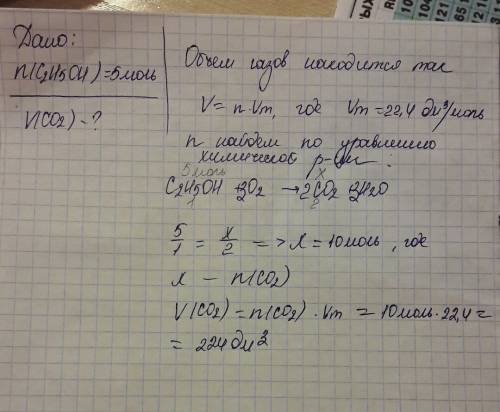 Дано:
n(C2H5OH)=5моль
V(CO2)-?
Объем газов находится так
V=n·Vm, где Vm=22,4 дм³/моль
n найдем по уравнению
химической р-ии:
5моль x
C2H5OH + 3O2 → 2CO2 + 3H2O
1 2
5/1 = x/2 => x = 10моль, где
x - n(CO2)
V(CO2)=n(CO2)·Vm = 10моль·22,4=
= 224 дм³